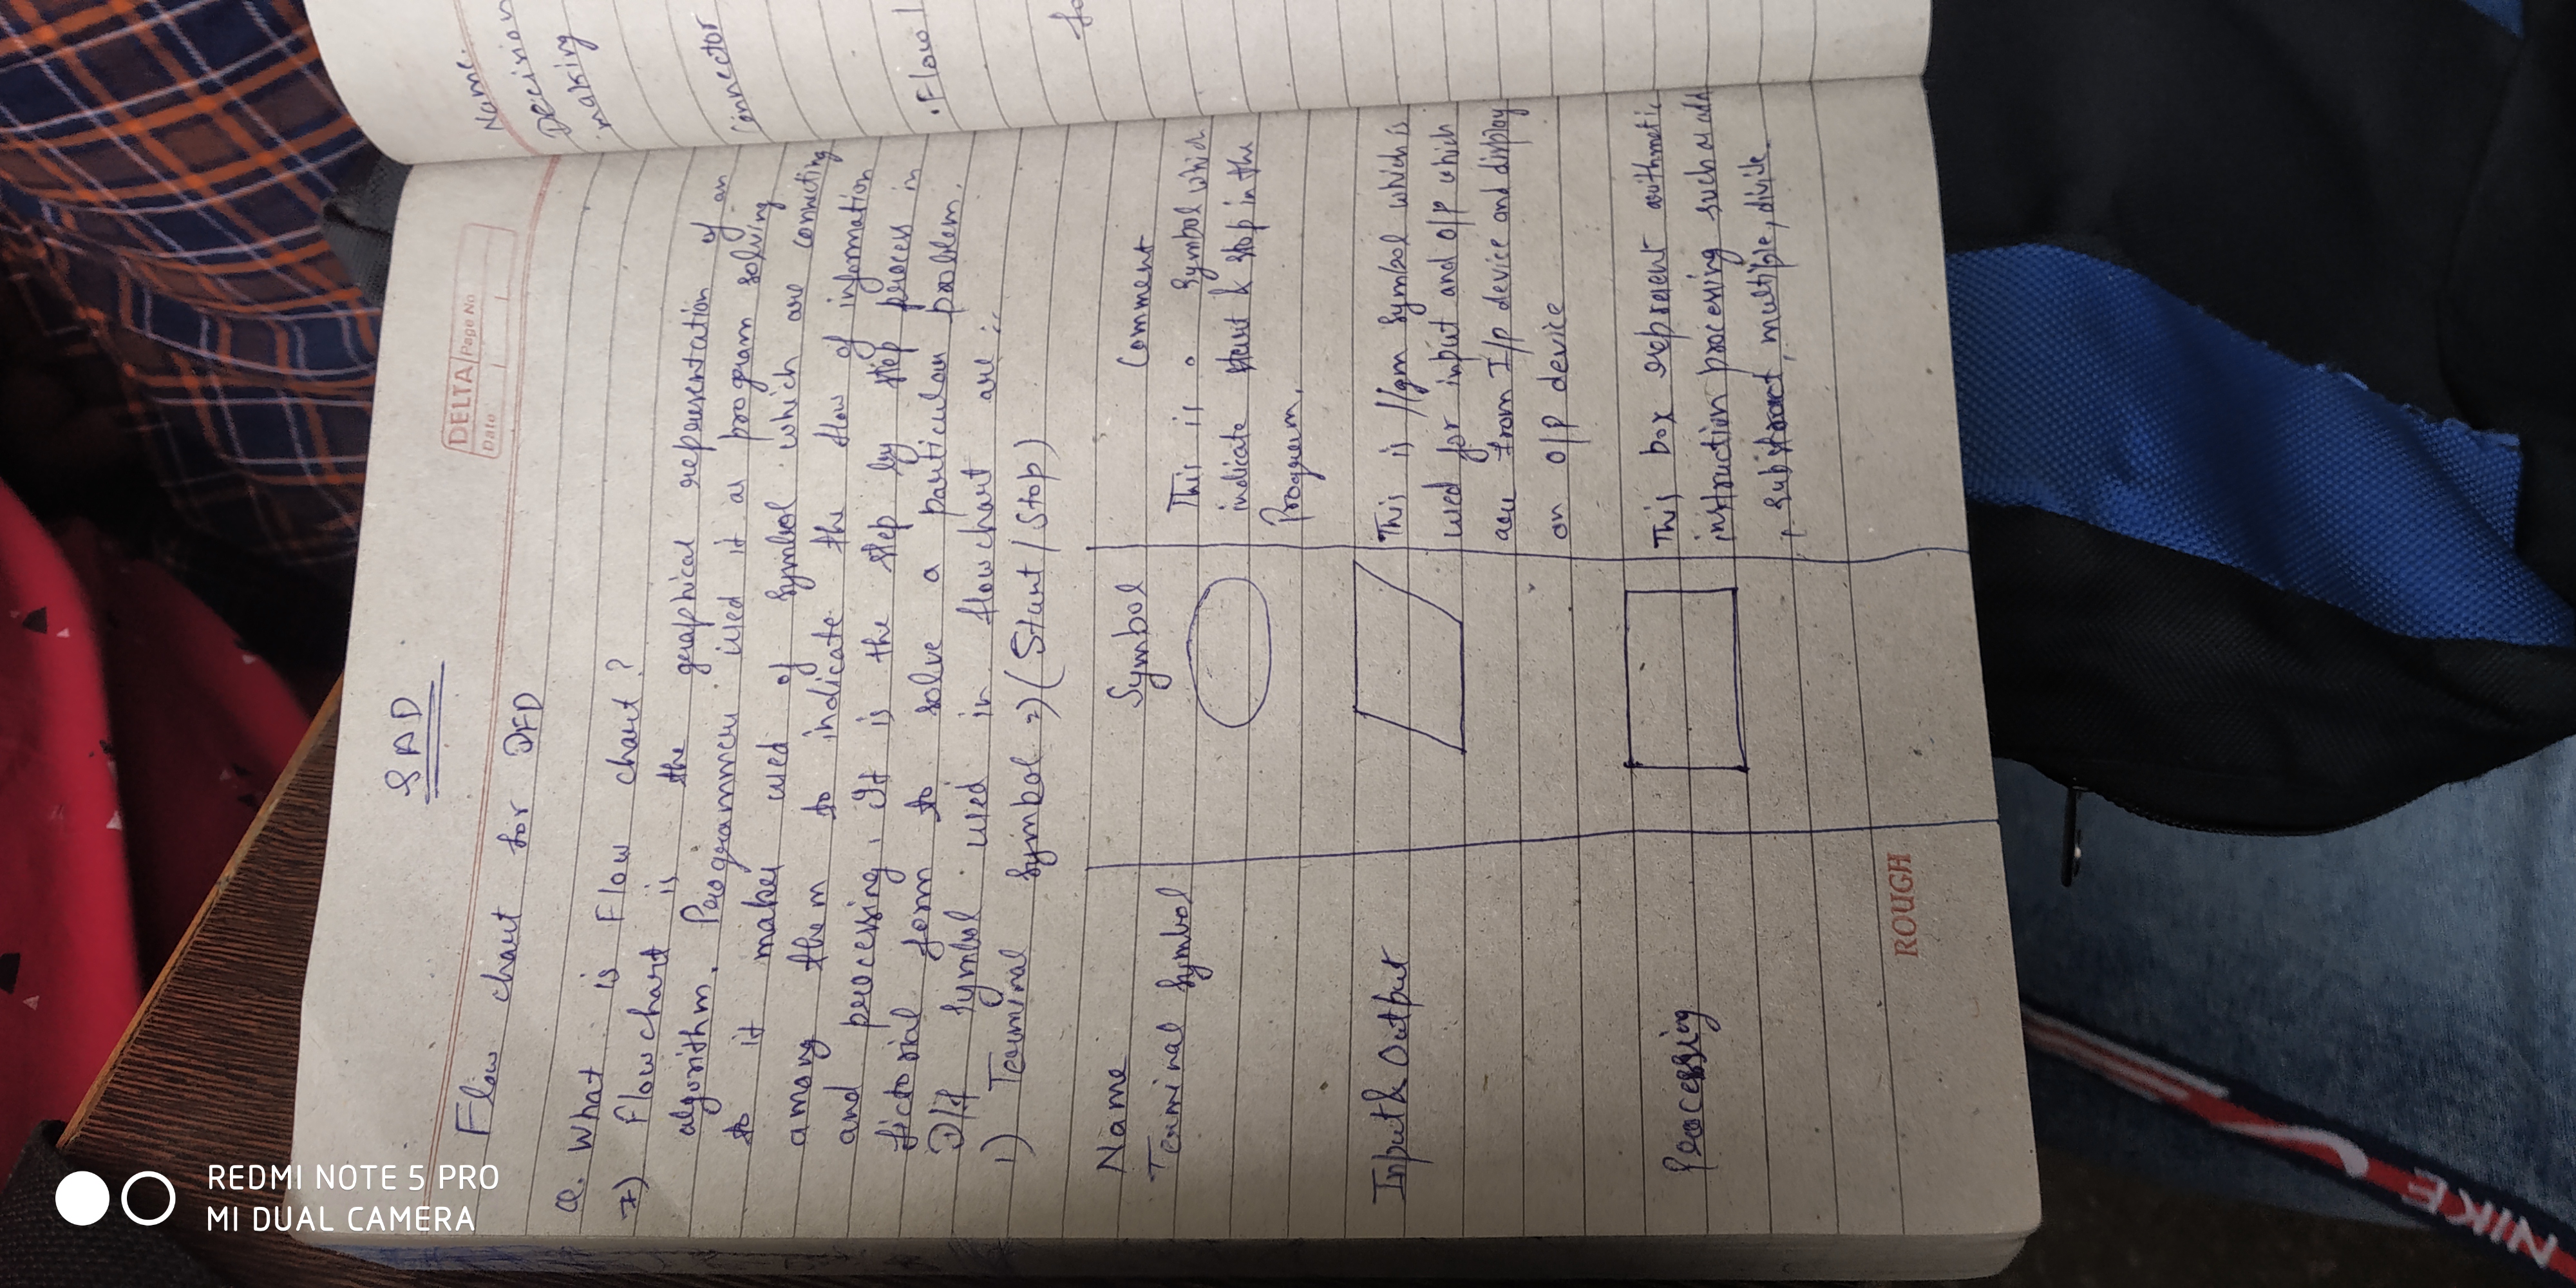 SAD
DELTA Page No
Date
Flow chart for DFD
Q. What is Flow chart?
Flowchart is the graphical representation of an
algorithm. Programmer used it as program solving
to it makes used of symbol which are connecting
among them to indicate the flow of information
and processing, it is the step by step process in
fictorial form to solve a particular problem.
D/f symbol used in flowchart are :-
1) Terminal Symbol (Start / Stop)
Name Symbol Comment
Terminal Symbol This is Symbol which
indicate start & stop in the
Program.
Input & Output This is //gm symbol which is
used for input and O/P which
are from I/p device and display
on O/P device
Processing This box represent arithmetic
instruction processing such as add
, substract, multiple, divide.
ROUGH
Name.
Decision
making
Connector
.Flow
fo
REDMI NOTE 5 PRO
MI DUAL CAMERA
NIKE